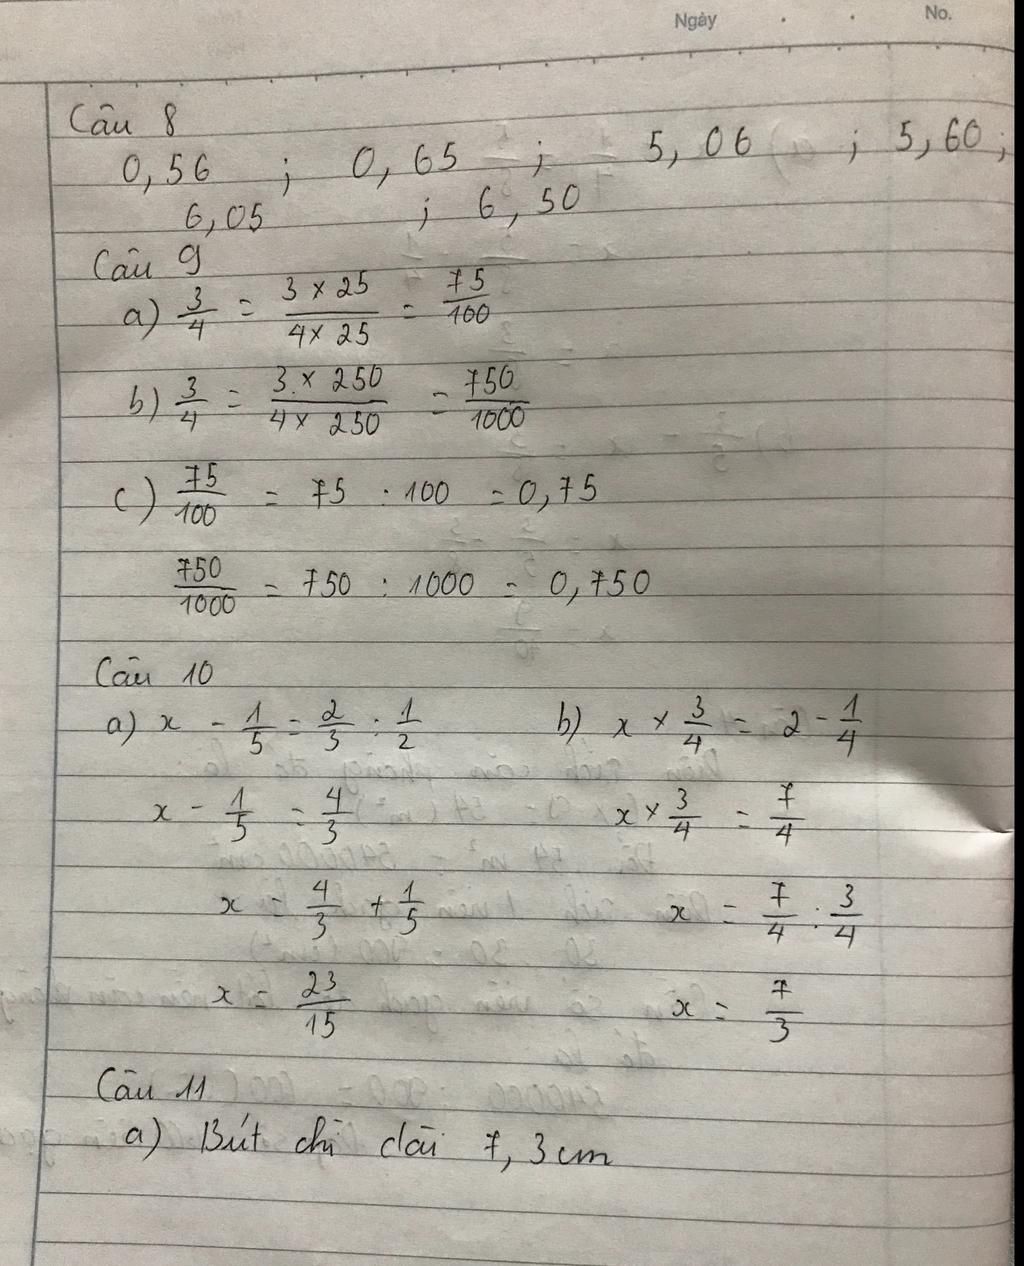 Ngày . . No.
Câu 8
0,56 ; 0,65 ; 5,06 ; 5,60 ;
6,05 ; 6,50
Câu 9
a) 3/4 = (3 × 25)/(4 × 25) = 75/100
b) 3/4 = (3 × 250)/(4 × 250) = 750/1000
c) 75/100 = 75 : 100 = 0,75
750/1000 = 750 : 1000 = 0,750
Câu 10
a) x - 1/5 = 2/3 : 1/2 b) x × 3/4 = 2 - 1/4
x - 1/5 = 4/3 x × 3/4 = 7/4
x = 4/3 + 1/5 x = 7/4 : 3/4
x = 23/15 x = 7/3
Câu 11
a) Bút chì dài 7,3 cm